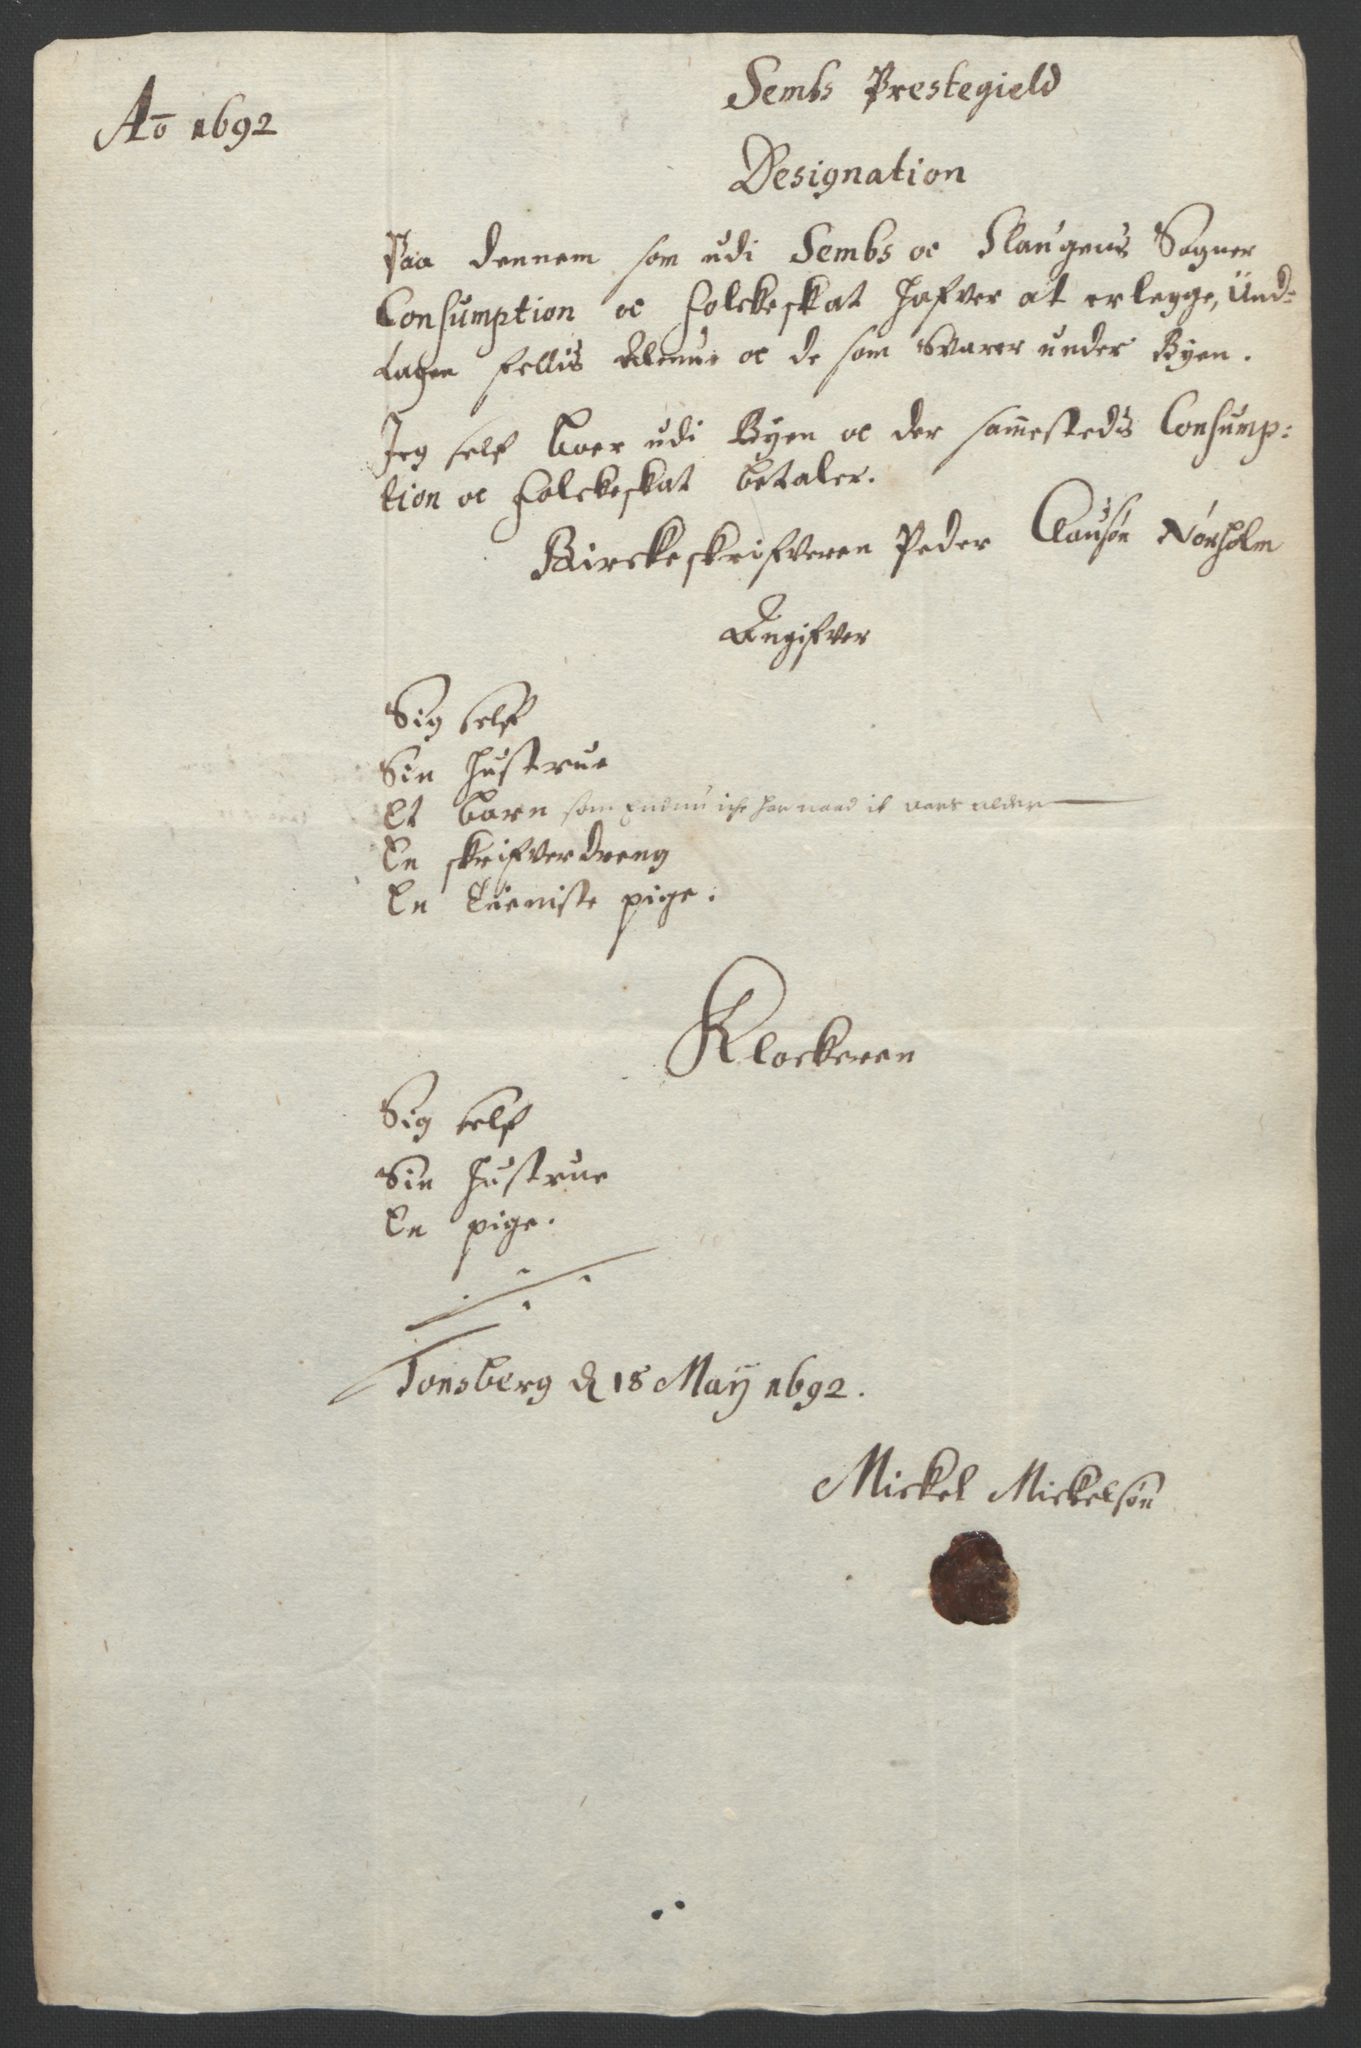 Ao 1692
Sembs Prestegield
Designation
Paa dennem som udi Sembs oc Slaugens Sogner
Consumption oc Folckeskat hafver at erlegge, Und=
tagen fellis Almue oc de som svarer under Byen.
Jeg self boer udi Byen oc der sammestedts Consump:
tion oc Folckeskat betaler.
Birckeskrifveren Peder Clausøn Nørholm
Angifver
Sig self
Sin hustrue
Et barn som Endnu iche har naad it aars alder
En skrifverdreng
En tieniste pige.
Klockeren
Sig self
Sin hustrue
En pige.
Tonsberg d 18 May 1692.
Mickel Mickelsøn